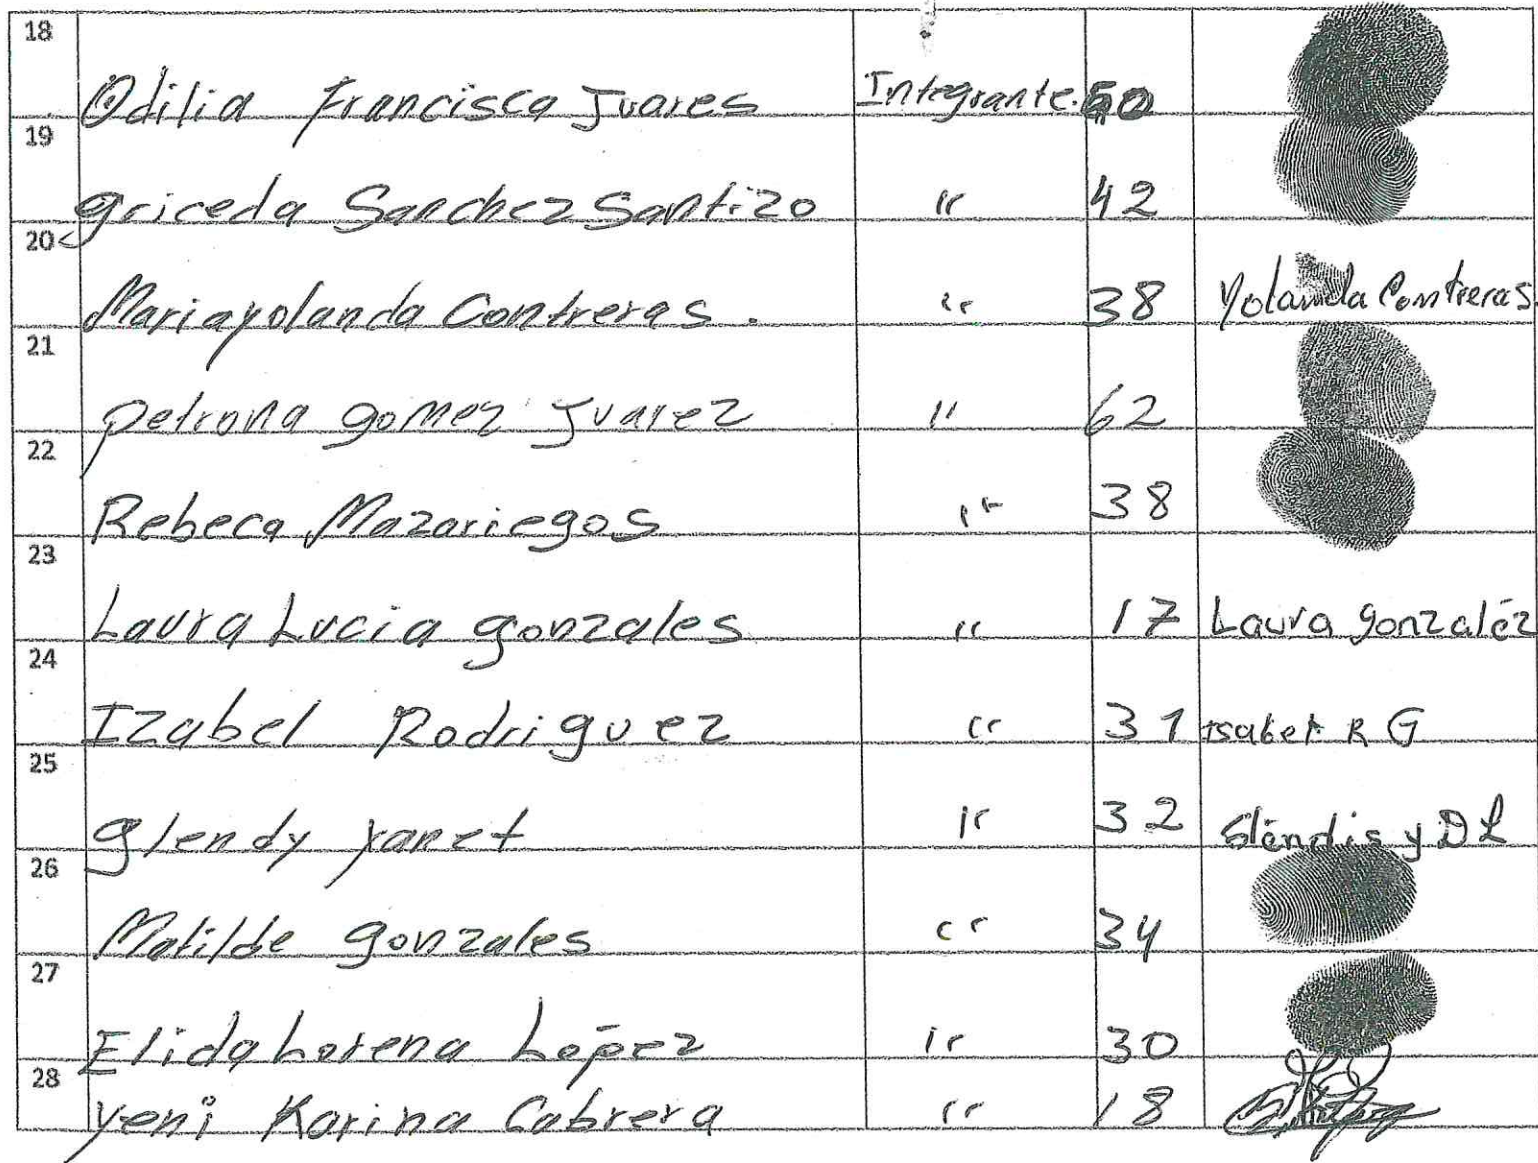 18 Odilia Francisca Juares Integrante. 50
19 Griceda Sanchez Santizo " 42
20 Mariayolanda Contreras. " 38 Yolanda Contreras
21 petrona gomez Juarez " 62
22 Rebeca Mazariegos " 38
23 Laura Lucia gonzales " 17 Laura gonzaléz
24 Izabel Rodriguez " 31 Isabel R G
25 glendy yanet " 32 Glendis y D L
26 Matilde gonzales " 34
27 Elida Lorena López " 30
28 yeni Karina Cabrera " 18